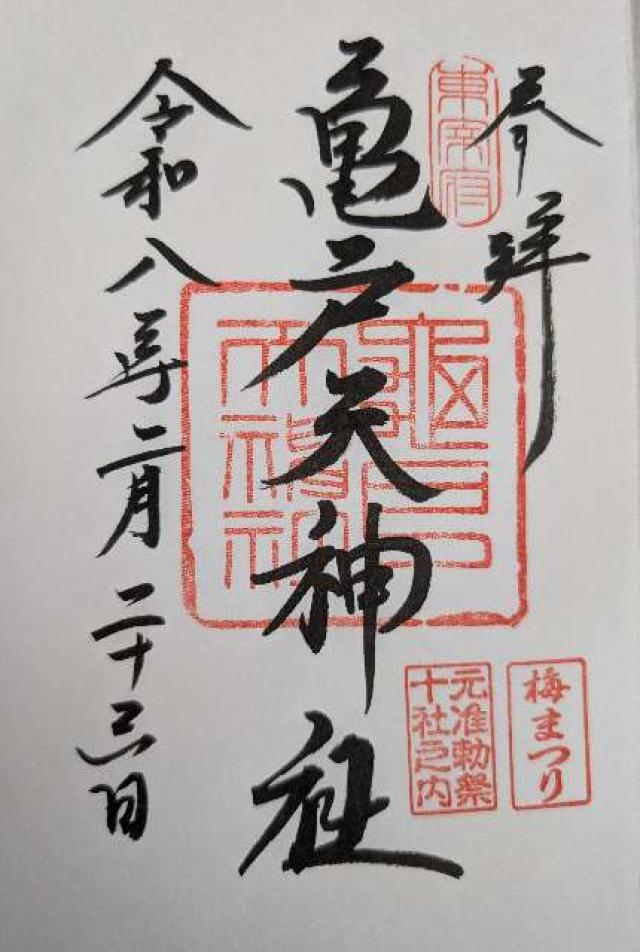 参拝
東宰府
亀戸天神社
亀戸
天神社
令和八年二月二十三日
梅まつり
元准勅祭
十社之内